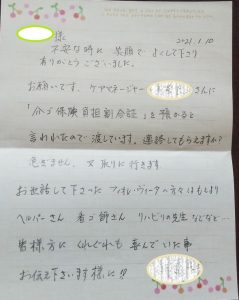 様
2021.1.10
不安な時に 笑顔で よくして下さり
有りがとうございました。
お願いです、ケアマネージャー さんに
「介ゴ保険負担割合証」を預かると
言われたので渡しています。連絡してもらえますか?
急ぎません。又 取りに行きます。
お世話して下さった フィオレ・ヴィータの方々はもとより
ヘルパーさん 看ゴ師さん リハビリの先生 などなど…
皆様方に くれぐれも 喜んでいた事
お伝え下さいます様に!!